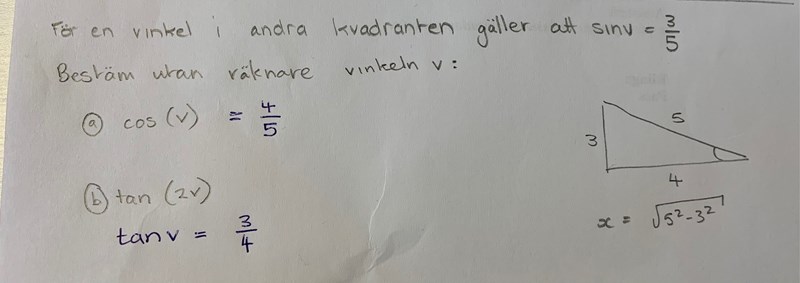 För en vinkel i andra kvadranten gäller att sinv = 3/5
Bestäm utan räknare vinkeln v:
ⓐ cos(v) = 4/5
ⓑ tan(2v)
tanv = 3/4
5
3
4
x = √5²-3²